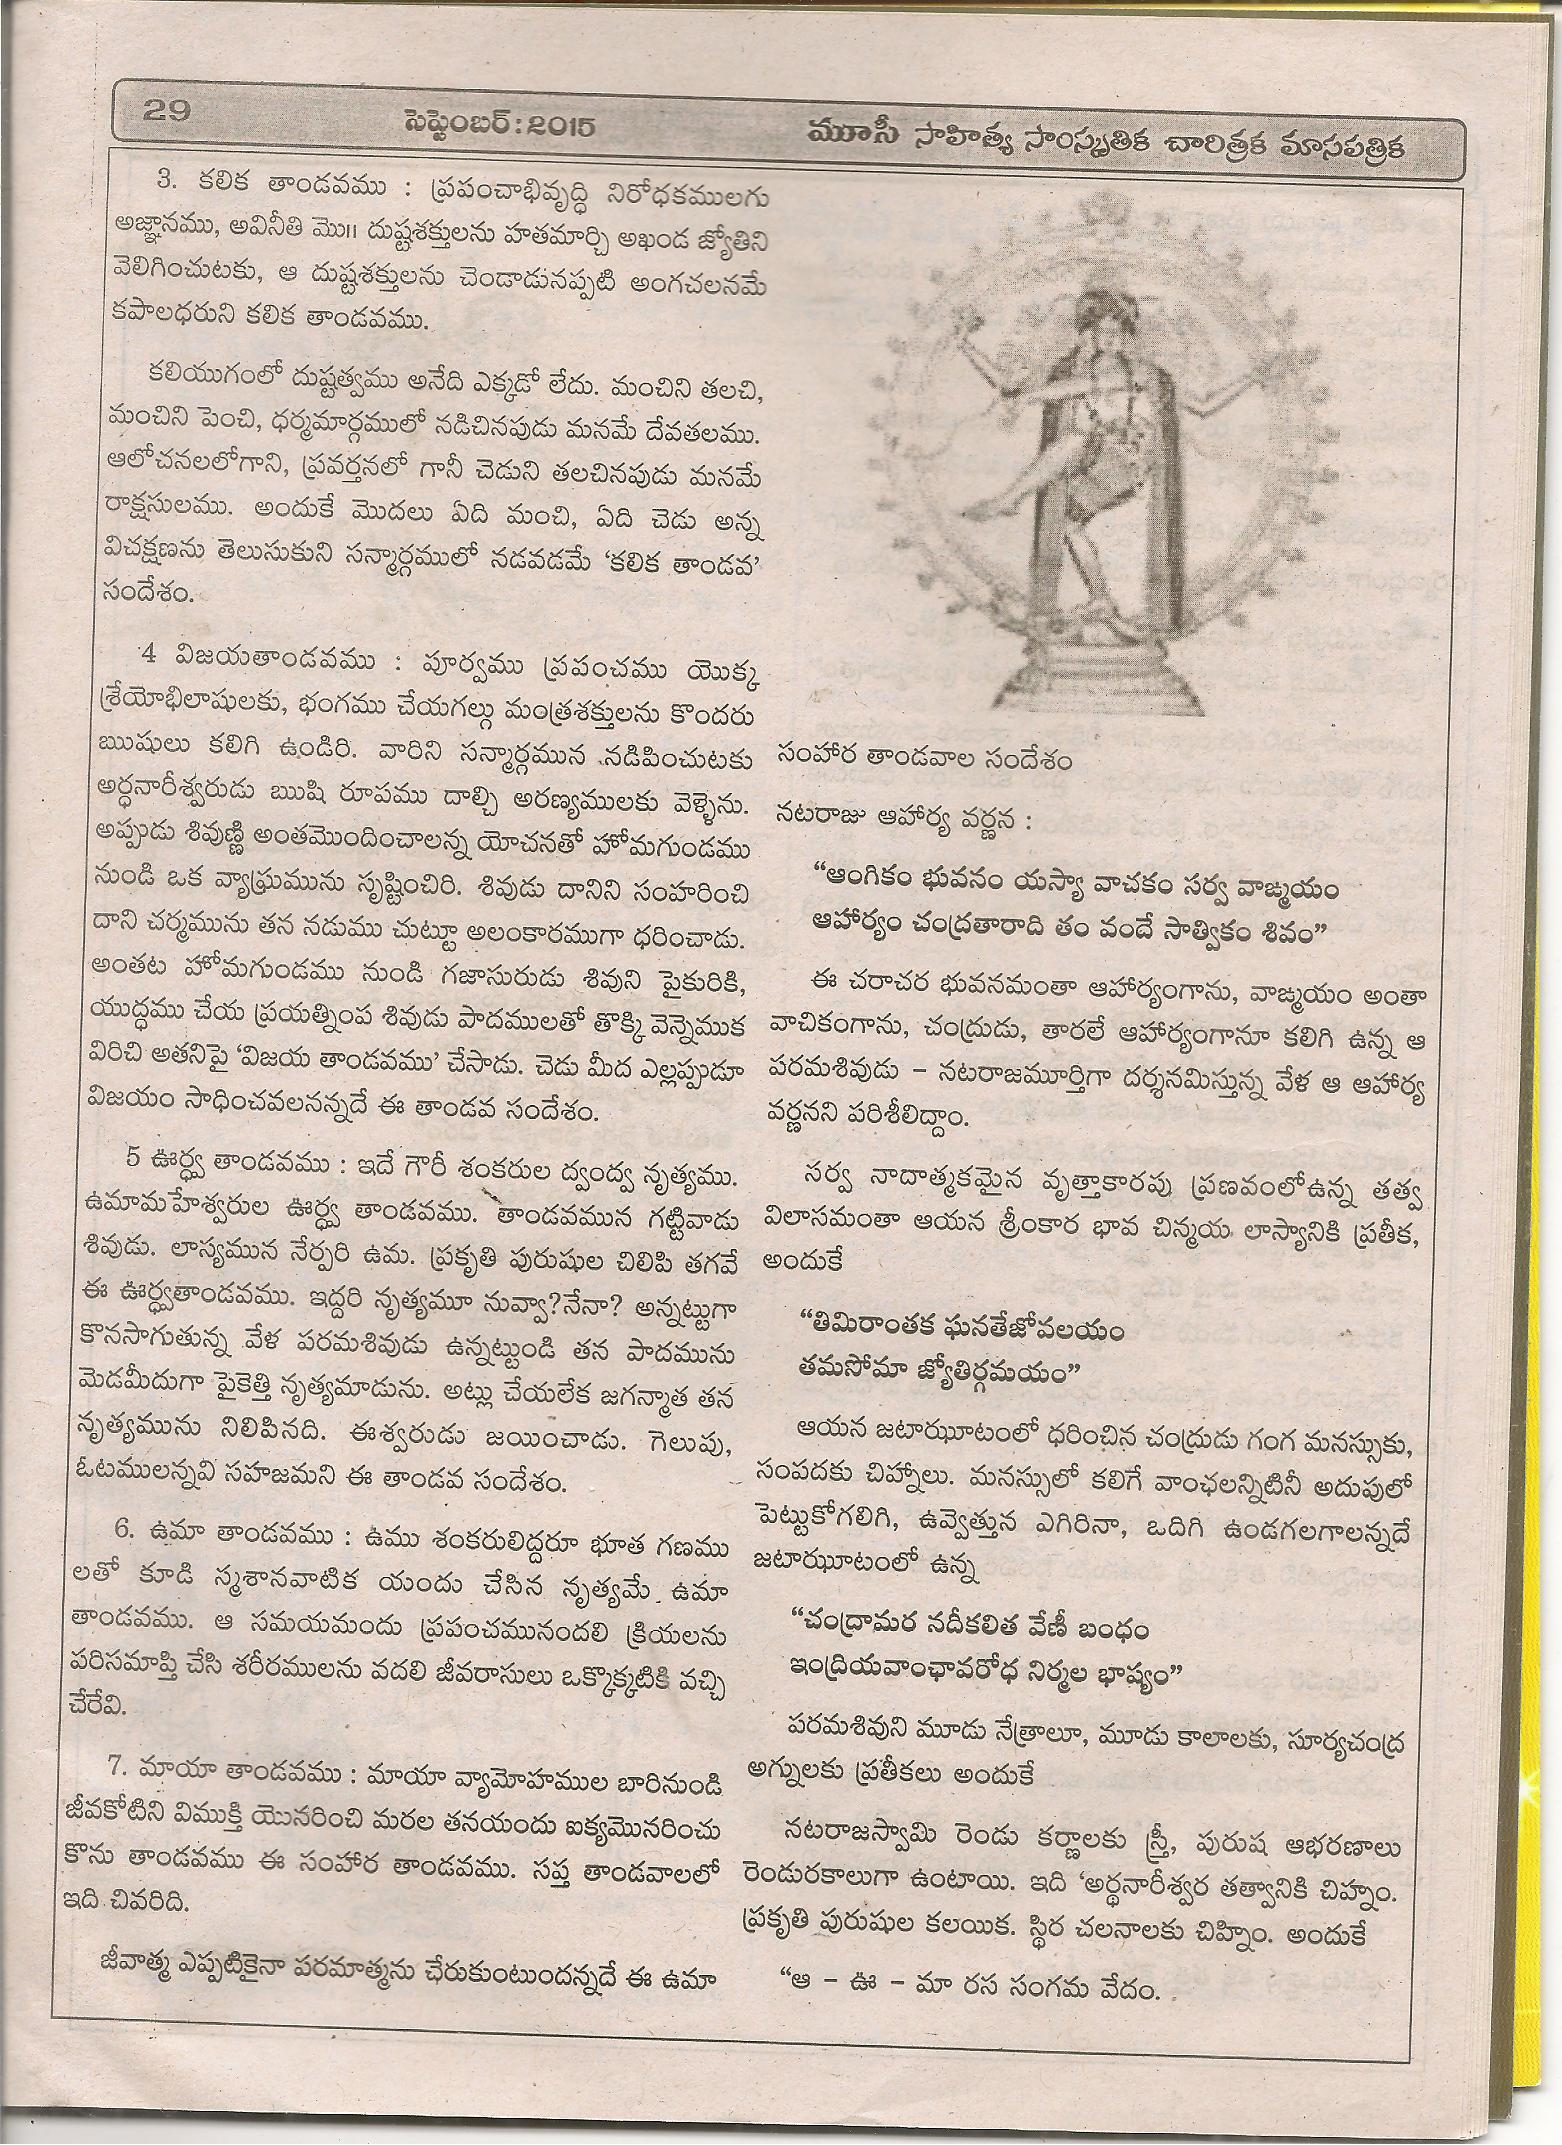 29
సెప్టెంబర్:2015
మూసీ సాహిత్య సాంస్కృతిక చారిత్రక మాసపత్రిక
3. కలిక తాండవము : ప్రపంచాభివృద్ధి నిరోధకములగు
అజ్ఞానము, అవినీతి మొ॥ దుష్టశక్తులను హతమార్చి అఖండ జ్యోతిని
వెలిగించుటకు, ఆ దుష్టశక్తులను చెండాడునప్పటి అంగచలనమే
కపాలధరుని కలిక తాండవము.
కలియుగంలో దుష్టత్వము అనేది ఎక్కడో లేదు. మంచిని తలచి,
మంచిని పెంచి, ధర్మమార్గములో నడిచినపుడు మనమే దేవతలము.
ఆలోచనలలోగాని, ప్రవర్తనలో గానీ చెడుని తలచినపుడు మనమే
రాక్షసులము. అందుకే మొదలు ఏది మంచి, ఏది చెడు అన్న
విచక్షణను తెలుసుకుని సన్మార్గములో నడవడమే ‘కలిక తాండవ’
సందేశం.
4 విజయతాండవము : పూర్వము ప్రపంచము యొక్క
శ్రేయోభిలాషులకు, భంగము చేయగల్గు మంత్రశక్తులను కొందరు
ఋషులు కలిగి ఉండిరి. వారిని సన్మార్గమున నడిపించుటకు
అర్ధనారీశ్వరుడు ఋషి రూపము దాల్చి అరణ్యములకు వెళ్ళెను.
అప్పుడు శివుణ్ణి అంతమొందించాలన్న యోచనతో హోమగుండము
నుండి ఒక వ్యాఘ్రమును సృష్టించిరి. శివుడు దానిని సంహరించి
దాని చర్మమును తన నడుము చుట్టూ అలంకారముగా ధరించాడు.
అంతట హోమగుండము నుండి గజాసురుడు శివుని పైకురికి,
యుద్ధము చేయ ప్రయత్నింప శివుడు పాదములతో తొక్కి వెన్నెముక
విరిచి అతనిపై ‘విజయ తాండవము’ చేసాడు. చెడు మీద ఎల్లప్పుడూ
విజయం సాధించవలనన్నదే ఈ తాండవ సందేశం.
5 ఊర్ధ్వ తాండవము : ఇదే గౌరీ శంకరుల ద్వంద్వ నృత్యము.
ఉమామహేశ్వరుల ఊర్ధ్వ తాండవము. తాండవమున గట్టివాడు
శివుడు. లాస్యమున నేర్పరి ఉమ. ప్రకృతి పురుషుల చిలిపి తగవే
ఈ ఊర్ధ్వతాండవము. ఇద్దరి నృత్యమూ నువ్వా?నేనా? అన్నట్టుగా
కొనసాగుతున్న వేళ పరమశివుడు ఉన్నట్టుండి తన పాదమును
మెడమీదుగా పైకెత్తి నృత్యమాడును. అట్లు చేయలేక జగన్మాత తన
నృత్యమును నిలిపినది. ఈశ్వరుడు జయించాడు. గెలుపు,
ఓటములన్నవి సహజమని ఈ తాండవ సందేశం.
6. ఉమా తాండవము : ఉము శంకరులిద్దరూ భూత గణము
లతో కూడి స్మశానవాటిక యందు చేసిన నృత్యమే ఉమా
తాండవము. ఆ సమయమందు ప్రపంచమునందలి క్రియలను
పరిసమాప్తి చేసి శరీరములను వదలి జీవరాసులు ఒక్కొక్కటికి వచ్చి
చేరేవి.
7. మాయా తాండవము : మాయా వ్యామోహముల బారినుండి
జీవకోటిని విముక్తి యొనరించి మరల తనయందు ఐక్యమొనరించు
కొను తాండవము ఈ సంహార తాండవము. సప్త తాండవాలలో
ఇది చివరిది.
జీవాత్మ ఎప్పటికైనా పరమాత్మను ఛేరుకుంటుందన్నదే ఈ ఉమా
సంహార తాండవాల సందేశం
నటరాజు ఆహార్య వర్ణన :
“ఆంగికం భువనం యస్యా వాచకం సర్వ వాఙ్మయం
ఆహార్యం చంద్రతారాది తం వందే సాత్వికం శివం”
ఈ చరాచర భువనమంతా ఆహార్యంగాను, వాఙ్మయం అంతా
వాచికంగాను, చంద్రుడు, తారలే ఆహార్యంగానూ కలిగి ఉన్న ఆ
పరమశివుడు – నటరాజమూర్తిగా దర్శనమిస్తున్న వేళ ఆ ఆహార్య
వర్ణనని పరిశీలిద్దాం.
సర్వ నాదాత్మకమైన వృత్తాకారపు ప్రణవంలోఉన్న తత్వ
విలాసమంతా ఆయన శ్రీంకార భావ చిన్మయ లాస్యానికి ప్రతీక,
అందుకే
“తిమిరాంతక ఘనతేజోవలయం
తమసోమా జ్యోతిర్గమయం”
ఆయన జటాఝూటంలో ధరించిన చంద్రుడు గంగ మనస్సుకు,
సంపదకు చిహ్నాలు. మనస్సులో కలిగే వాంఛలన్నిటినీ అదుపులో
పెట్టుకోగలిగి, ఉవ్వెత్తున ఎగిరినా, ఒదిగి ఉండగలగాలన్నదే
జటాఝూటంలో ఉన్న
“చంద్రామర నదీకలిత వేణీ బంధం
ఇంద్రియవాంఛావరోధ నిర్మల భాష్యం”
పరమశివుని మూడు నేత్రాలూ, మూడు కాలాలకు, సూర్యచంద్ర
అగ్నులకు ప్రతీకలు అందుకే
నటరాజస్వామి రెండు కర్ణాలకు స్త్రీ, పురుష ఆభరణాలు
రెండురకాలుగా ఉంటాయి. ఇది ‘అర్థనారీశ్వర తత్వానికి చిహ్నం.
ప్రకృతి పురుషుల కలయిక. స్థిర చలనాలకు చిహ్నిం. అందుకే
“ఆ – ఊ – మా రస సంగమ వేదం.